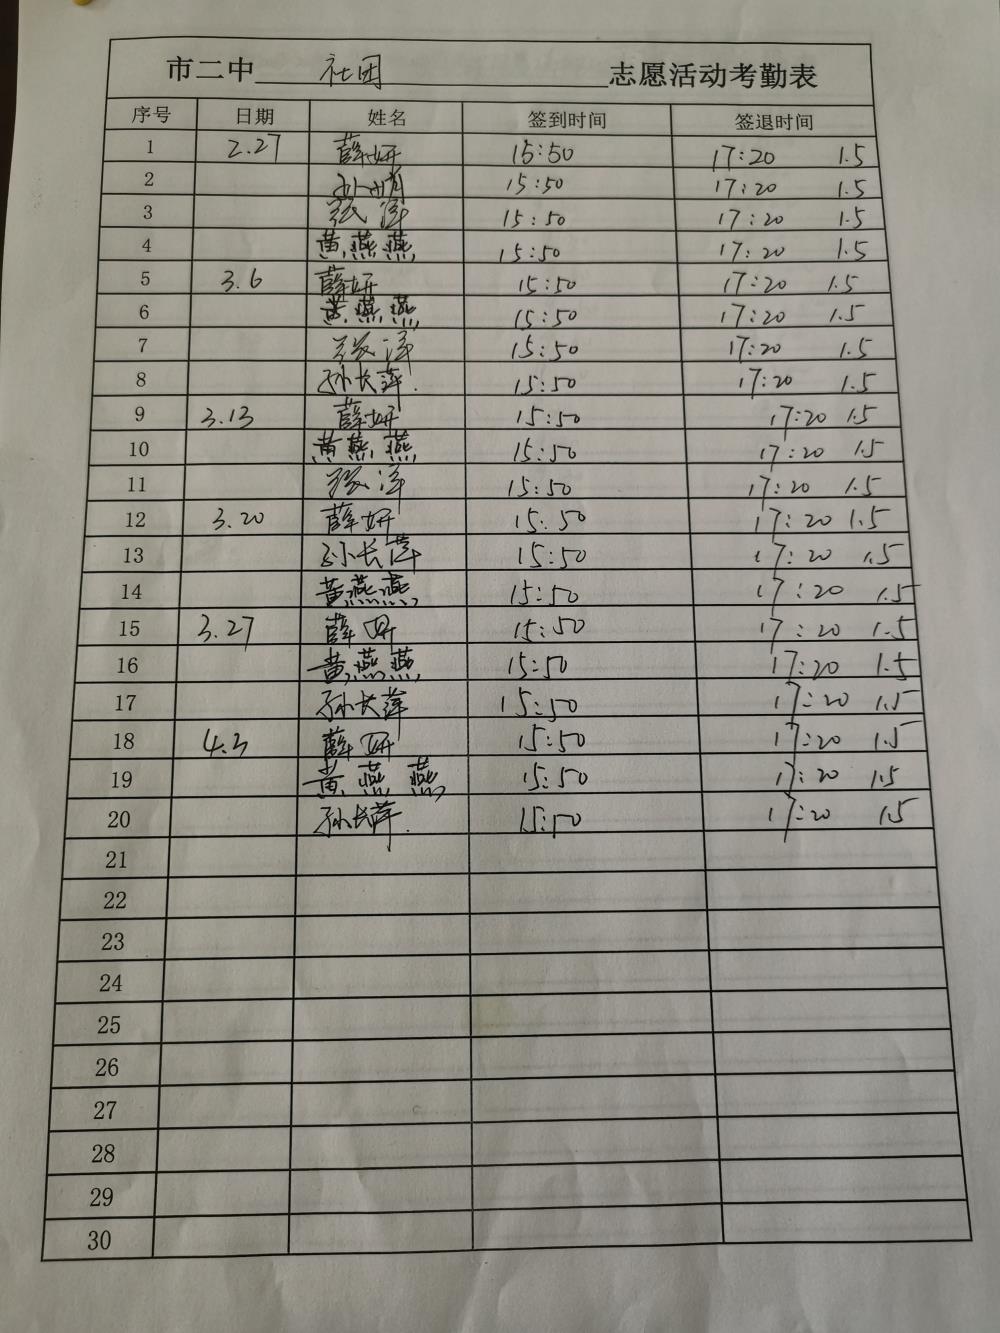 市二中 社团 志愿活动考勤表
序号 日期 姓名 签到时间 签退时间
1 2.27 薛妍 15:50 17:20 1.5
2 15:50 17:20 1.5
3 张洋 15:50 17:20 1.5
4 黄燕燕 15:50 17:20 1.5
5 3.6 薛妍 15:50 17:20 1.5
6 黄燕燕 15:50 17:20 1.5
7 张洋 15:50 17:20 1.5
8 孙长萍 15:50 17:20 1.5
9 3.13 薛妍 15:50 17:20 1.5
10 黄燕燕 15:50 17:20 1.5
11 张洋 15:50 17:20 1.5
12 3.20 薛妍 15:50 17:20 1.5
13 孙长萍 15:50 17:20 1.5
14 黄燕燕 15:50 17:20 1.5
15 3.27 薛妍 15:50 17:20 1.5
16 黄燕燕 15:50 17:20 1.5
17 孙长萍 15:50 17:20 1.5
18 4.3 薛妍 15:50 17:20 1.5
19 黄燕燕 15:50 17:20 1.5
20 孙长萍 15:50 17:20 1.5
21
22
23
24
25
26
27
28
29
30